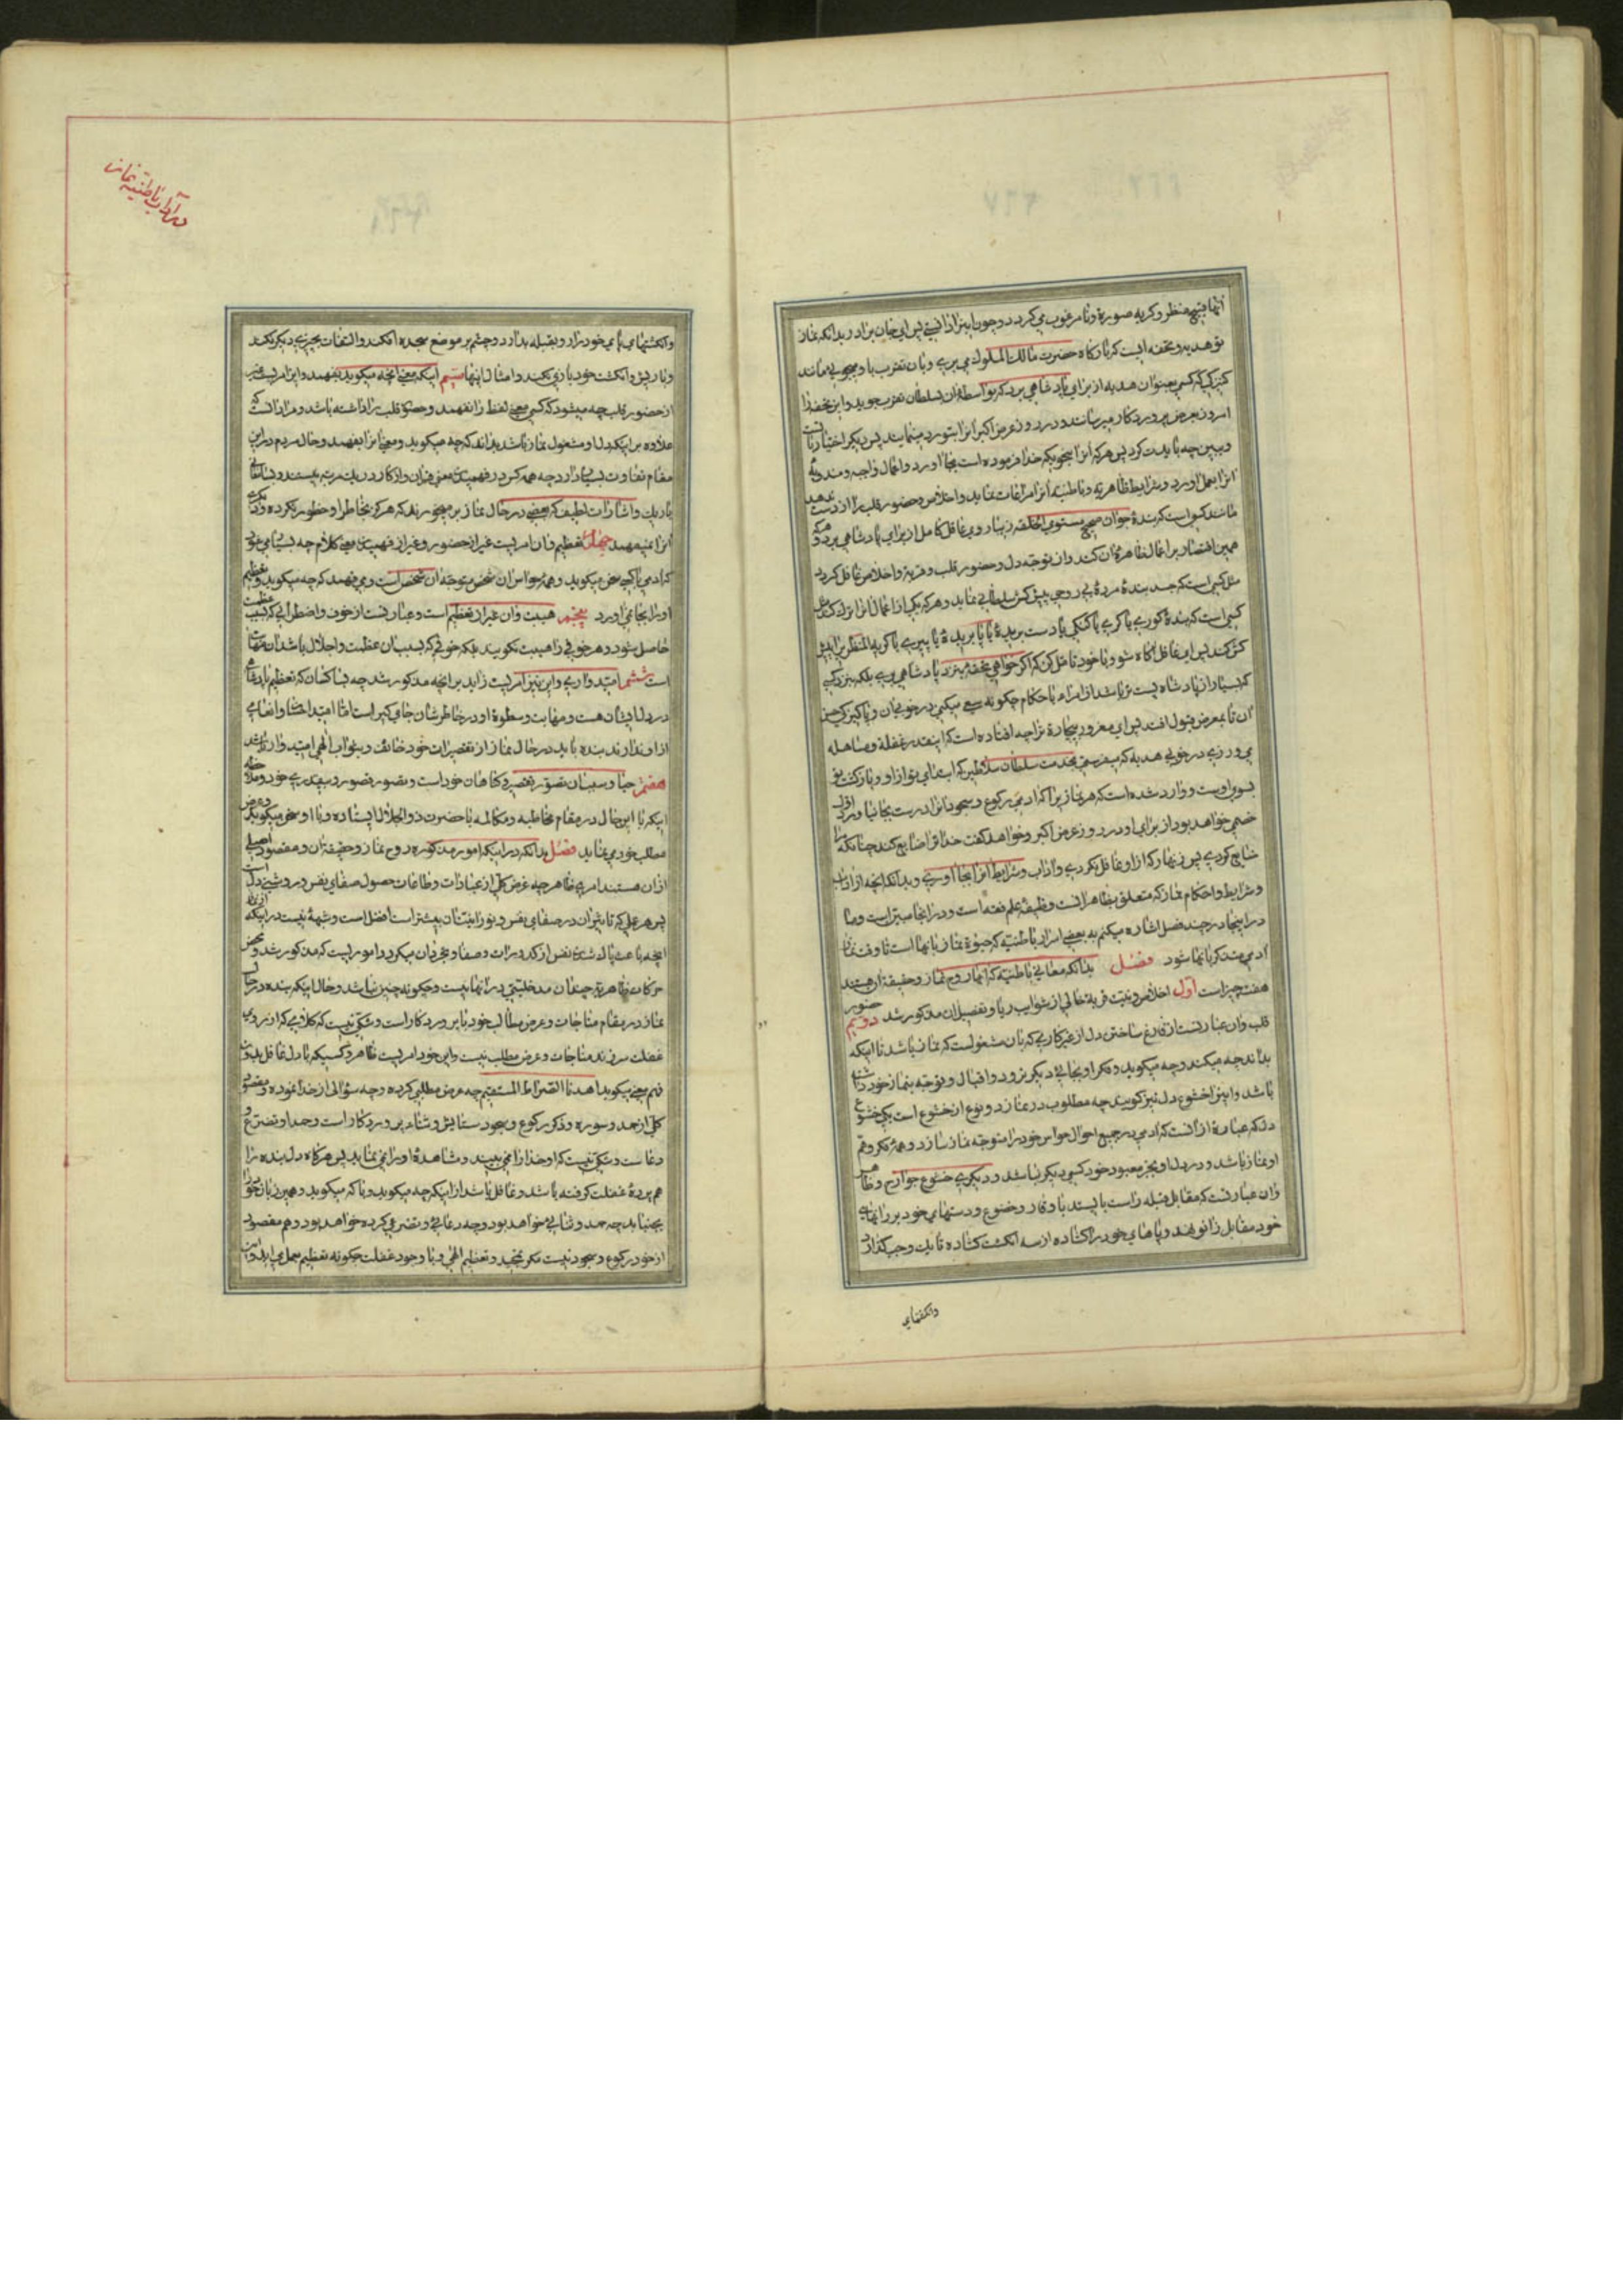 انها قبیح منظر و کریه صورة و نامرغوب می کردد و چون اینرا دانستی پس ای جان برادر بدانکه نماز
تو هدیه و تحفه ایست که بدرکاه حضرت مالک الملوک می بری و بان تقرب باو میجویی مانند
کنیزکی که کسی بعنوان هدیه از برای پادشاهی برد که بواسطه ان بسلطان تقرب جوید و این تحفه را
امروز بعرض پروردکار میرسانند و در روز عرض اکبر انرا بتو رد مینمایند پس دیکر اختیار با تست
و ببین چه بایدت کرد پس هر که انرا بنحویکه خدا فرموده است بجا اورد و اعمال واجبه و مندوبه
انرا بعمل اورد و شرایط ظاهریه و باطنیه انرا مراعات نماید و اخلاص و حضور قلب را از دست ندهد
مانند کسی است که بندهٔ جوان صحیح مستوی الخلقه زیبا روی عاقل کامل از برای پادشاهی برد و هر که
همین اقتصار بر اعمال ظاهره ان کند و از توجه دل و حضور قلب و قربة و اخلاص غافل کردد
مثل کسی است که جسد بندهٔ مردهٔ بی روحی پیش کش سلطانی نماید و هر که یکی از اعمال انرا ترک کند مثل
کسی است که بندهٔ کوری یا کری یا کنکی یا دست بریدهٔ یا پا بریدهٔ یا پیری یا کریه المنظری را پیش
کش کند پس ای غافل اکاه شو و با خود تامل کن که اکر خواهی تحفه بنزد پادشاهی بری بلکه بنزد کسی
که بسیار از پادشاه پست تر باشد از امراء یا حکام چکونه سعی میکنی در خوبی ان و پاکیزکی جنس
ان تا بمعرض قبول افتد پس ای مغرور بیچاره ترا چه افتاده است که اینقدر غفلة و مساهله
می ورزی در خوبی هدیه که میفرستی بخدمت سلطان سلاطین که ابتدای تو از او و بازکشت تو
بسوی اوست و وارد شده است که هر نمازیرا که ادمی رکوع و سجود انرا درست بجا نیاورد اول
خصمی خواهد بود از برای او در روز عرض اکبر و خواهد کفت خدا ترا ضایع کند چنانکه مرا
ضایع کردی پس زنهار که از او غافل نکردی و اداب و شرایط انرا بجا اوری و بدانکه انچه از اداب
و شرایط و احکام نماز که متعلق بظاهر انست وظیفهٔ علم فقه است و در انجا مبین است و ما
در اینجا در چند فصل اشاره میکنیم به بعضی اسرار باطنیه که حیوة نماز بانها است تا وقت نماز
ادمی متذکر بانها شود فصل بدانکه معانی باطنیه که انها روح نماز و حقیقة ان هستند
هفت چیز است اول اخلاص و نیت قربة خالی از شوایب ریا و تفصیل ان مذکور شد دویم حضور
قلب و ان عبارتست از فارغ ساختن دل از غیر کاری که بان مشغولست که نماز باشد تا اینکه
بداند چه میکند و چه میکوید و فکر او بجایی دیکر نرود و اقبال و توجه بنماز خود داشته
باشد و اینرا خشوع دل نیز کویند چه مطلوب در نماز دو نوع از خشوع است یکی خشوع
دل که عبارة از انست که ادمی در جمیع احوال حواس خود را متوجه نماز سازد و همهٔ فکر و هم
او نماز باشد و در دل او بجز معبود خود کسی دیکر نباشد و دیکری خشوع جوارح و ظاهر
و ان عبارتست که مقابل قبله راست بایستد با وقار و خضوع و دستهای خود بر رانهای
خود مقابل زانو نهد و پاهای خود را کشاده از سه انکشت کشاده تا یک وجب کذارد
وانکشتهای
در آداب باطنیه نماز
وانکشتهای پای خود را رو بقبله بدارد و چشم بر موضع سجده افکند و التفات بچیزی دیکر نکند
و با ریش و انکشت خود بازی نکند و امثال اینها سیم اینکه معنی انچه میکوید بفهمد و این امریست غیر
از حضور قلب چه میشود که کسی معنی لفظ را نفهمد و حضور قلب را داشته باشد و مراد انست که
علاوه بر اینکه دل او مشغول نماز باشد بداند که چه میکوید و معنی انرا بفهمد و حال مردم در این
مقام تفاوت بسیار دارد چه همه کس در فهمیدن معنی قران و اذکار در یک مرتبه نیستند و بسا معانی
باریک و اشارات لطیف که بعضی در حال نماز بر میخورند که هرکز بخاطر او خطور نکرده و دیکری
انرا نمیفهمد چهارم تعظیم و ان امریست غیر از حضور و غیر از فهمیدن معنی کلام چه بسیار میشود
که ادمی با کسی سخن میکوید و همهٔ حواس ان شخص متوجه ان شخص است و می فهمد که چه میکوید و تعظیم
او را بجا نمی اورد پنجم هیبت و ان غیر از تعظیم است و عبارتست از خوف و اضطرابی که بسبب عظمت
حاصل شود و هر خوفی را هیبت نکویند بلکه خوفی که بسبب ان عظمت و اجلال باشد ان مهابت
است ششم امیدواری و این نیز امریست زاید بر انچه مذکور شد چه بسا کسان که تعظیم پادشاهی
در دل ایشان هست و مهابت و سطوة او در خاطرشان جای کیر است اما امید احسان و انعامی
از او ندارند بنده باید در حال نماز از تقصیرات خود خائف و بثواب الهی امیدوار باشد
هفتم حیا و سبب ان تصور تقصیر و کناهان خود است و تصور قصور و بیقدری خود و ملاحظه
اینکه با این حال در مقام مخاطبه و مکالمه با حضرت ذو الجلال ایستاده و با او سخن میکوید و عرض
مطلب خود می نماید فصل بدانکه در اینکه امور مذکوره روح نماز و حقیقة ان و مقصود اصلی
از ان هستند امری ظاهر چه غرض کلی از عبادات و طاعات حصول صفای نفس و روشنی دل است
پس هر عملی که تاثیر ان در صفای نفس و نورانیت ان بیشتر است افضل است و شبههٔ نیست در اینکه
انچه باعث پاک شدن نفس از کدورات و صفا و تجرد ان میکردد اموریست که مذکور شد و محض
حرکات ظاهریه چندان مدخلیتی در انها نیست و چکونه چنین نباشد و حال اینکه بنده در حال
نماز در مقام مناجات و عرض مطالب خود با پروردکار است و شکی نیست که کلامی که از روی
غفلت سر زند مناجات و عرض مطلب نیست و این خود امریست ظاهر و کسیکه با دل غافل بدون
فهم معنی میکوید اهدنا الصراط المستقیم چه عرض مطلبی کرده و چه سؤالی از خدا نموده و مقصود
کلی از حمد و سوره و ذکر رکوع و سجود ستایش و ثناء پروردکار است و حمد او و تضرع و
دعاست و شکی نیست که او خدا را نمی بیند و مشاهدهٔ او را نمی نماید پس هرکاه دل بنده را
هم پردهٔ غفلت کرفته باشد و غافل باشد از اینکه چه میکوید و با که میکوید و همین زبان خود را
بجنباند چه حمد و ثنایی خواهد بود و چه دعایی و تضرعی کرده خواهد بود و هم مقصود
از خود رکوع و سجود نیست مکر تمجید و تعظیم الهی و با وجود غفلت چکونه تعظیم بعمل می اید و این